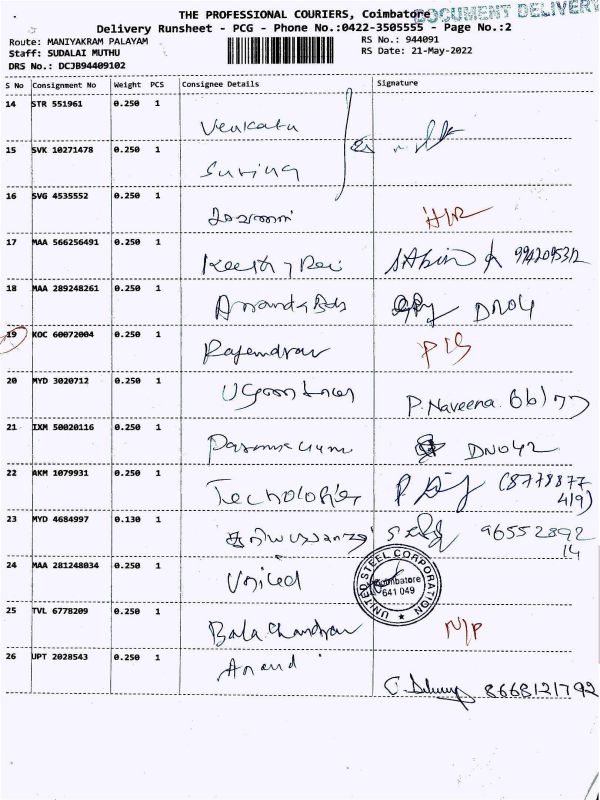 THE PROFESSIONAL COURIERS, Coimbatore
DOCUMENT DELIVERY
Delivery Runsheet - PCG - Phone No.:0422-3505555 - Page No.:2
Route: MANIYAKRAM PALAYAM
RS No.: 944091
Staff: SUDALAI MUTHU
RS Date: 21-May-2022
DRS No.: DCJB94409102
S No Consignment No Weight PCS Consignee Details Signature
14 STR 551961 0.250 1
Venkata
15 SVK 10271478 0.250 1
16 SVG 4535552 0.250 1
17 MAA 566256491 0.250 1
9942095312
18 MAA 289248261 0.250 1
Ananda Bds DNO4
19 KOC 60072004 0.250 1
Rajendran
20 MYD 3020712 0.250 1
P. Naveena
21 IXM 50020116 0.250 1
DNO42
22 AKM 1079931 0.250 1
Technologies (8778877
419)
23 MYD 4684997 0.130 1
96552892
14
24 MAA 281248034 0.250 1
United
UNITED STEEL CORPORATION
Coimbatore
641 049
25 TVL 6778209 0.250 1
Bala chandran N/P
26 UPT 2028543 0.250 1
Anand
8668121792